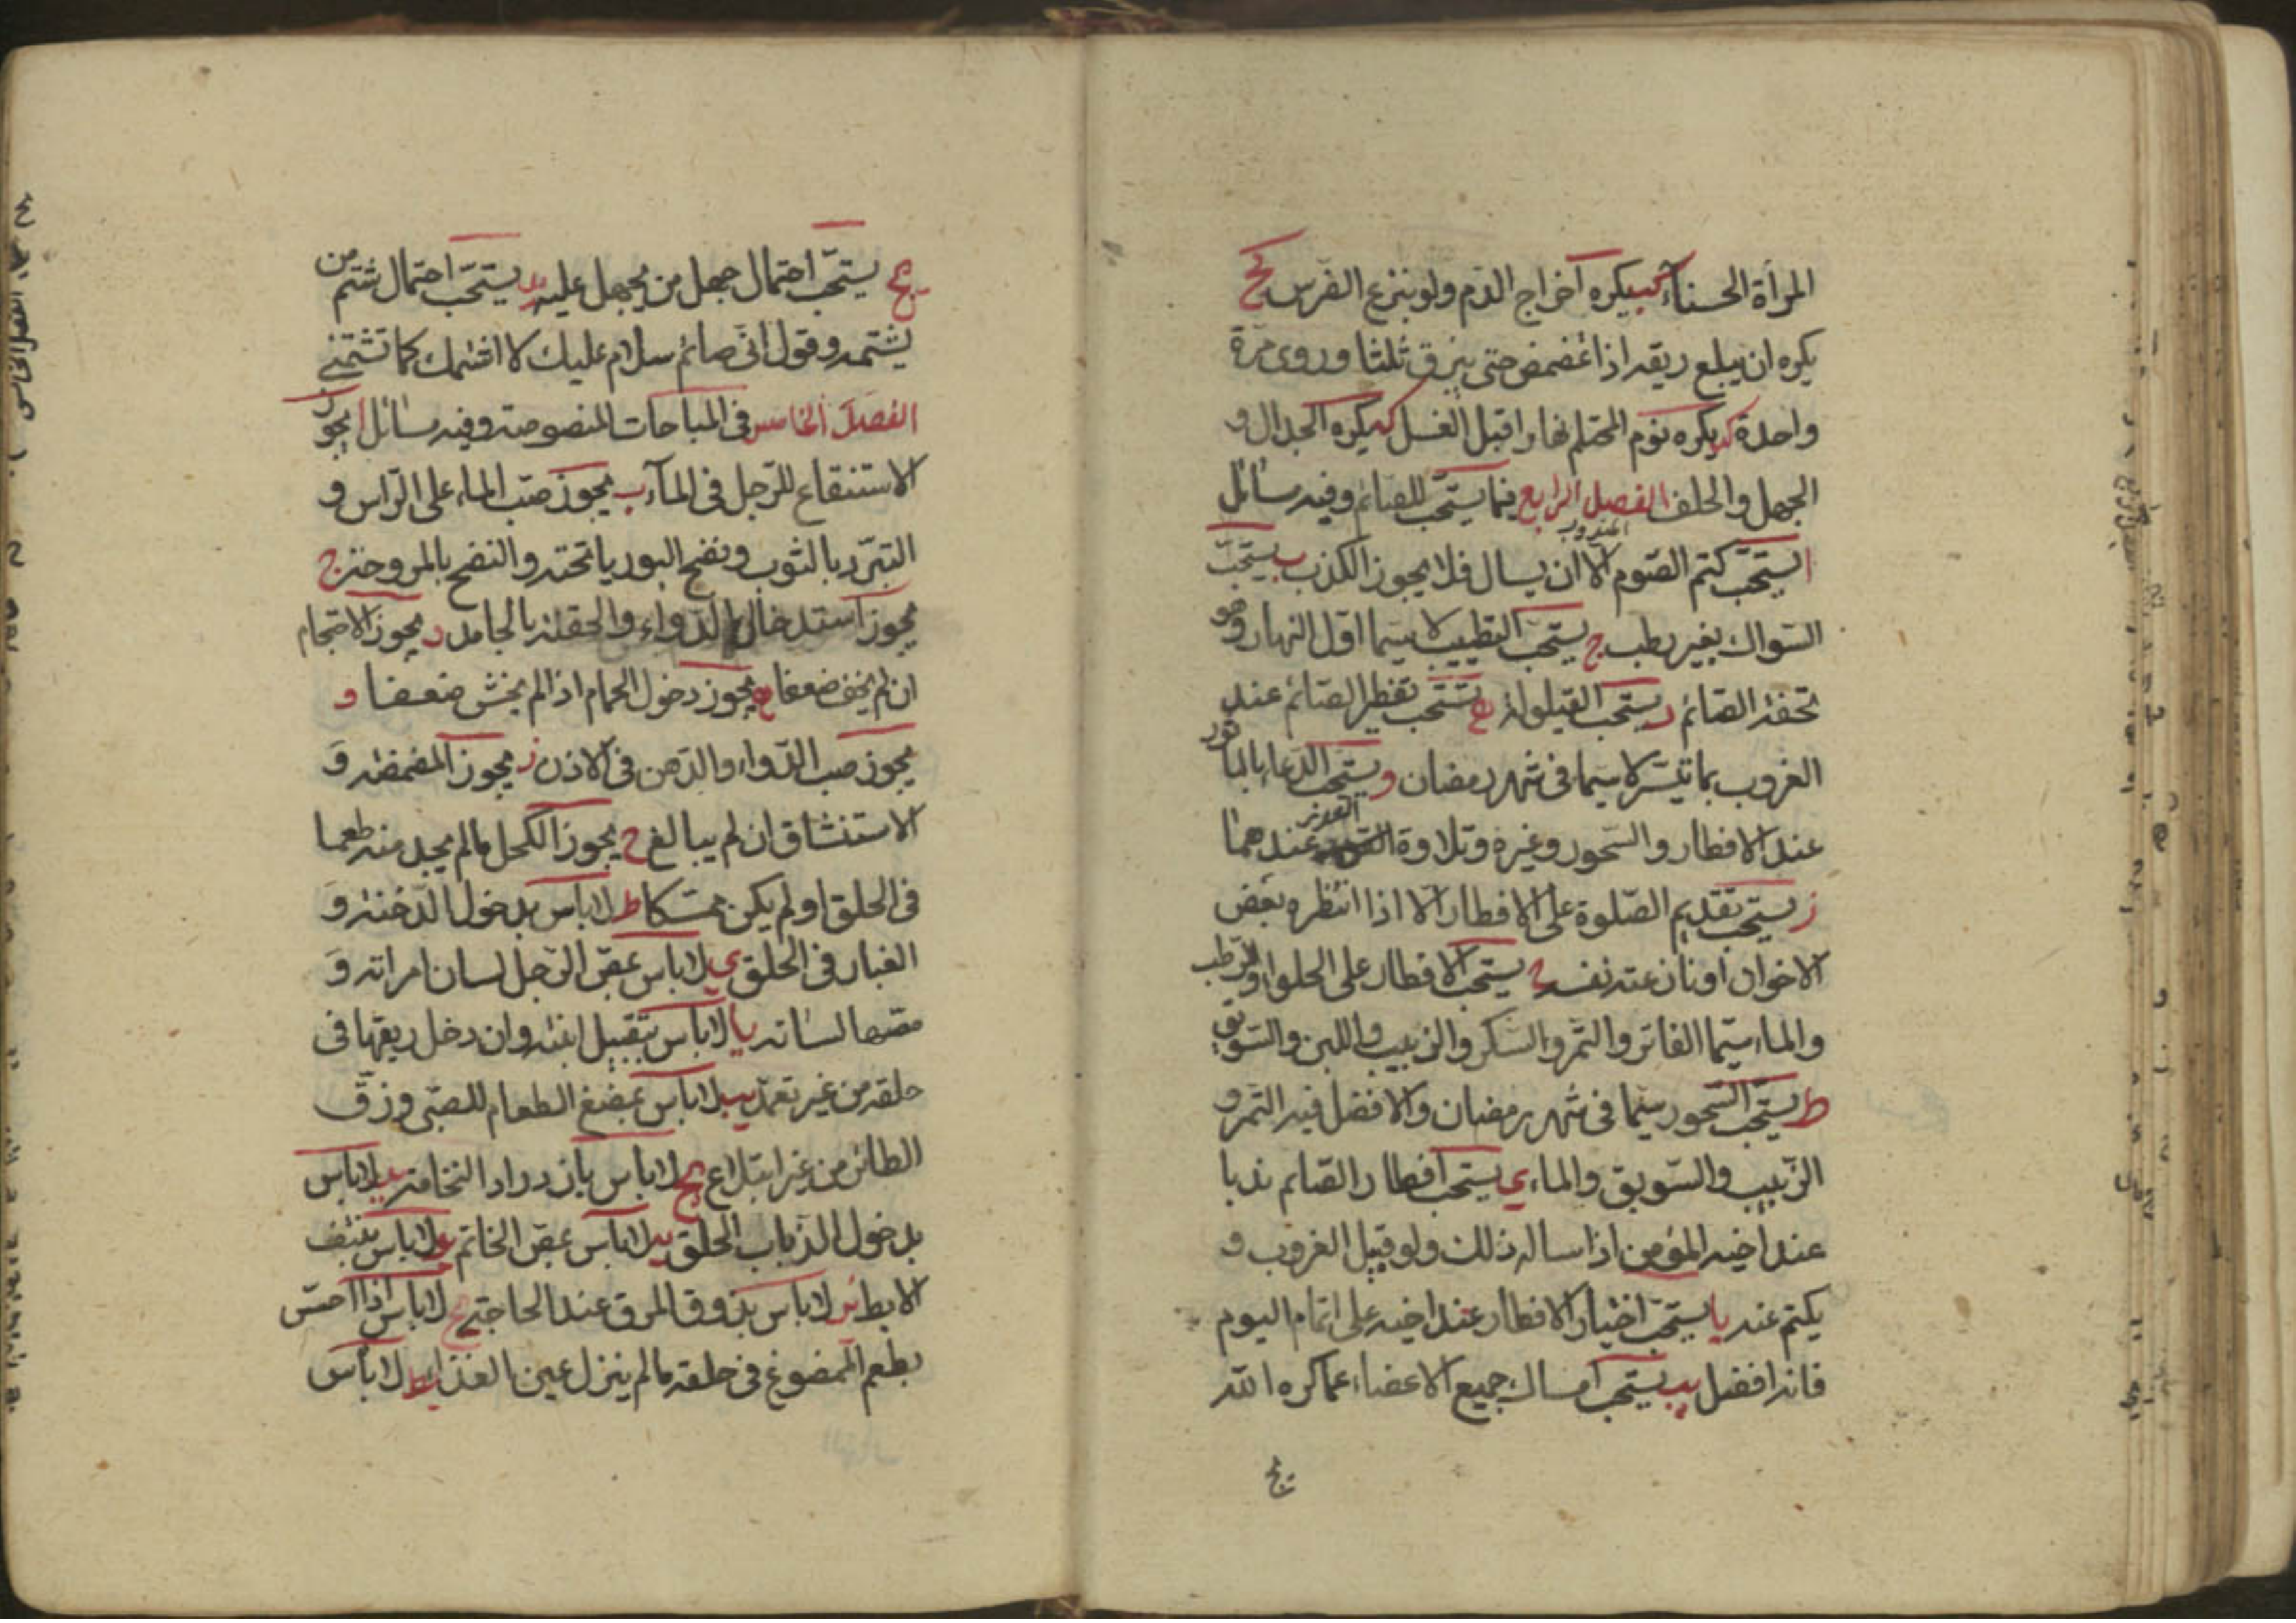 المرأة الحسناء كب يكره اخراج الدم ولو بنزع الضرس كج
يكره ان يبلع ريقه اذا تمضمض حتى يبزق ثلثا وروى مرة
واحدة كد يكره نوم المحتلم نهارا قبل الغسل كه يكره الجدال و
الجهل والحلف الفصل الرابع فيما يستحب للصائم وفيه مسائل
ا يستحب كتم الصوم الا ان يسال فلا يجوز الكذب ب يستحب
السواك بغير رطب ج يستحب التطيب لا سيما اول النهار وهو
تحفة الصائم د يستحب القيلولة ه يستحب تفطير الصائم عند
الغروب بما تيسر لا سيما فى شهر رمضان و يستحب الدعاء بالماثور
عند الافطار والسحور وغيره وتلاوة القدر عندهما
ز يستحب تقديم الصلوة على الافطار الا اذا انتظره بعض
الاخوان او نازعته نفسه ح يستحب الافطار على الحلواء والرطب
والماء سيما الفاتر والتمر والسكر والزبيب واللبن والسويق
ط يستحب السحور سيما فى شهر رمضان والافضل فيه التمر و
الزبيب والسويق والماء ى يستحب افطار الصايم ندبا
عند اخيه المؤمن اذا ساله ذلك ولو قبيل الغروب و
يكتم عنه يا يستحب اختيار الافطار عند اخيه على اتمام اليوم
فانه افضل يب يستحب امساك جميع الاعضاء عما كره الله
يج
يج يستحب احتمال جهل من يجهل عليه يد يستحب احتمال شتم من
يشتمه وقول انى صائم سلام عليك لا اشتمك كما تشتمنى
الفصل الخامس فى المباحات المنصوصة وفيه مسائل ا يجوز
الاستنقاع للرجل فى الماء ب يجوز صب الماء على الراس و
التبرد بالثوب ونضح البوريا تحته والنضح بالمروحة ج
يجوز استدخال الدواء والحقنة بالجامد د يجوز الاحتجام
ان لم يخف ضعفا ه يجوز دخول الحمام اذا لم يخش ضعفا و
يجوز صب الدواء والدهن فى الاذن ز يجوز المضمضة و
الاستنشاق ان لم يبالغ ح يجوز الكحل مالم يجد منه طعما
فى الحلق او لم يكن ممسكا ط لا باس بدخول الدخنة و
الغبار فى الحلق ى لا باس بمص الرجل لسان امراته و
مصها لسانه يا لا باس بتقبيل ابنته وان دخل ريقها فى
حلقه من غير تعمد يب لا باس بمضغ الطعام للصبى وزق
الطائر من غير ابتلاع يج لا باس بازدراد النخامة يد لا باس
بدخول الذباب الحلق يه لا باس بمص الخاتم يو لا باس بنتف
الابط يز لا باس بذوق المرق عند الحاجة يح لا باس اذا احس
بطعم الممضوغ فى حلقه مالم ينزل عين الغذاء يط لا باس